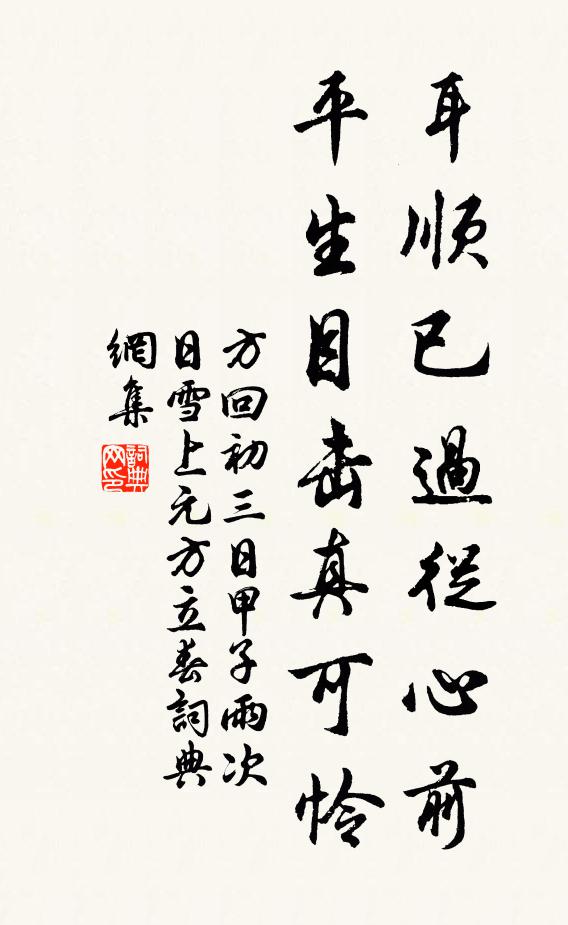 耳順已過從心前
平生目击真可怜
方回初三日甲子雨次
日雪上元方立春詞典
網集
詞典
网印